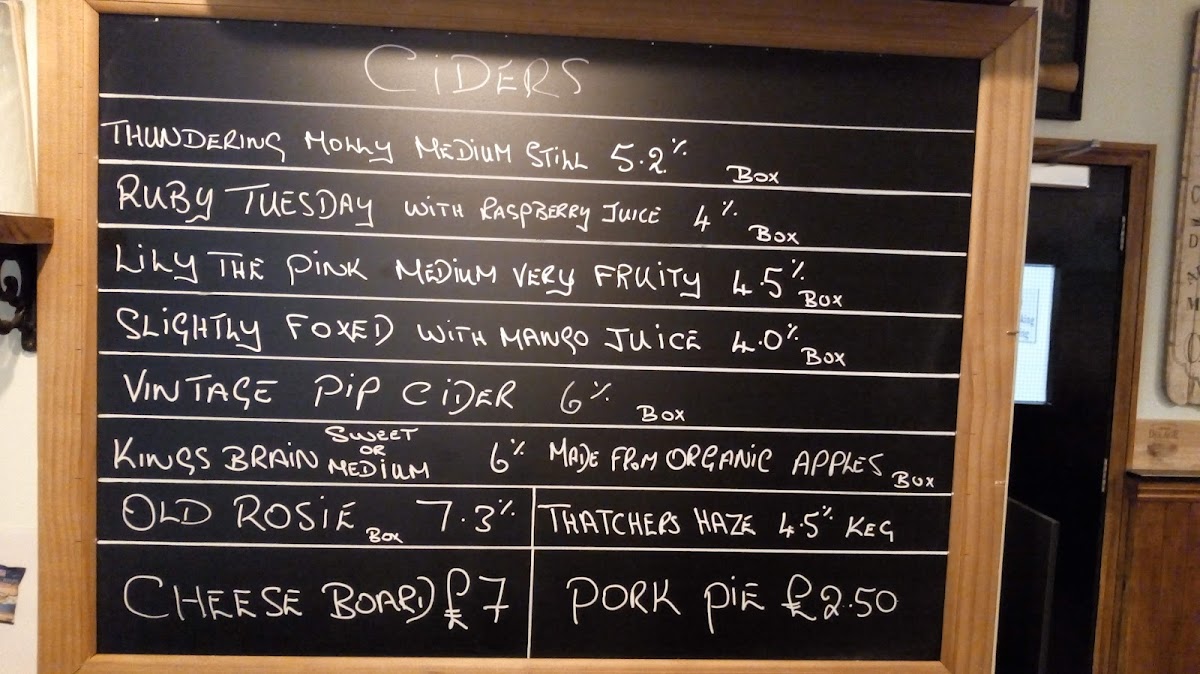 CIDERS
THUNDERING MOLLY MEDIUM STILL 5.2% BOX
RUBY TUESDAY WITH RASPBERRY JUICE 4% BOX
LILY THE PINK MEDIUM VERY FRUITY 4.5% BOX
SLIGHTLY FOXED WITH MANGO JUICE 4.0% BOX
VINTAGE PIP CIDER 6% BOX
KINGS BRAIN SWEET OR MEDIUM 6% MADE FROM ORGANIC APPLES BOX
OLD ROSIE BOX 7.3%
THATCHERS HAZE 4.5% KEG
CHEESE BOARD £7
PORK PIE £2.50